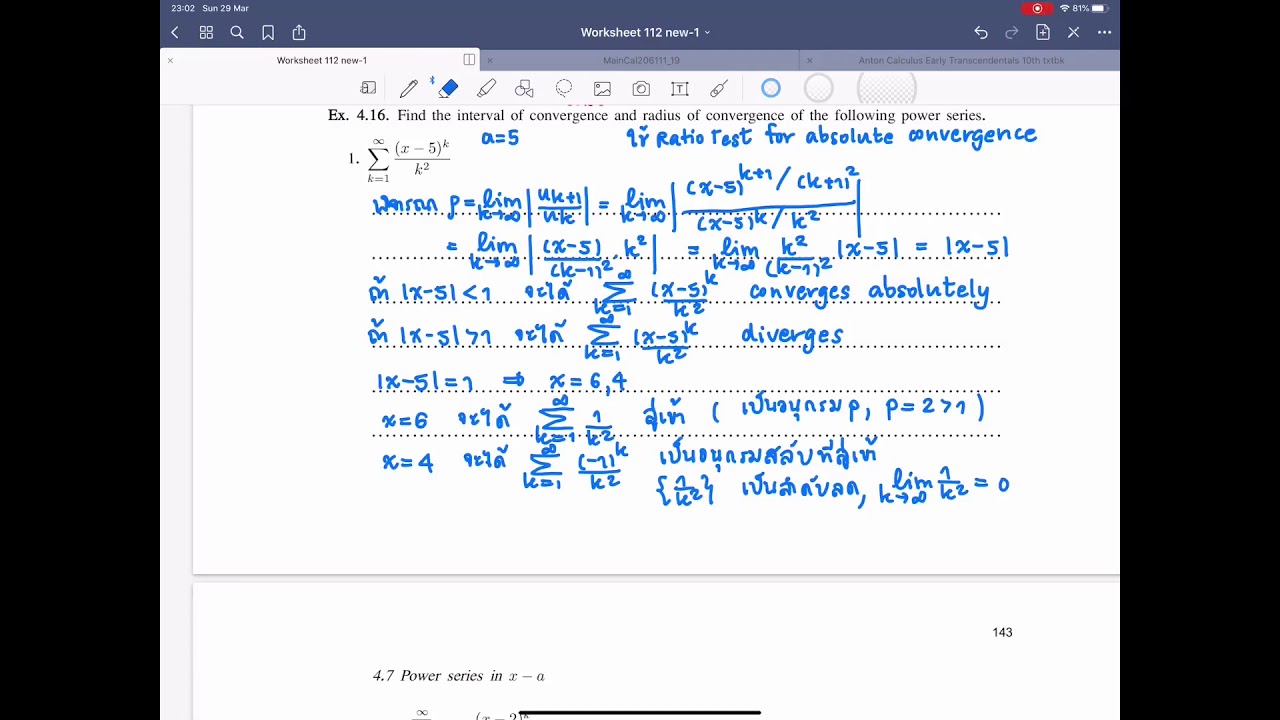 23:02 Sun 29 Mar
81%
Worksheet 112 new-1
Worksheet 112 new-1
MainCal206111_19
Anton Calculus Early Transcendentals 10th txtbk
Ex. 4.16. Find the interval of convergence and radius of convergence of the following power series.
a=5 ใช้ Ratio Test for absolute convergence
1. ∑_{k=1}^{∞} (x − 5)^k / k^2
พิจารณา ρ = lim_{k→∞} |u_{k+1}/u_k| = lim_{k→∞} |((x-5)^{k+1} / (k+1)^2) / ((x-5)^k / k^2)|
= lim_{k→∞} |(x-5)/(k-1)^2 · k^2| = lim_{k→∞} k^2/(k-1)^2 |x-5| = |x-5|
ถ้า |x-5| < 1 จะได้ ∑_{k=1}^{∞} (x-5)^k/k^2 converges absolutely
ถ้า |x-5| > 1 จะได้ ∑_{k=1}^{∞} (x-5)^k/k^2 diverges
|x-5| = 1 ⇒ x = 6, 4
x=6 จะได้ ∑_{k=1}^{∞} 1/k^2 ลู่เข้า ( เป็นอนุกรม p, p = 2 > 1 )
x=4 จะได้ ∑_{k=1}^{∞} (-1)^k/k^2 เป็นอนุกรมสลับที่ลู่เข้า
{1/k^2} เป็นลำดับลด, lim_{k→∞} 1/k^2 = 0
143
4.7 Power series in x − a